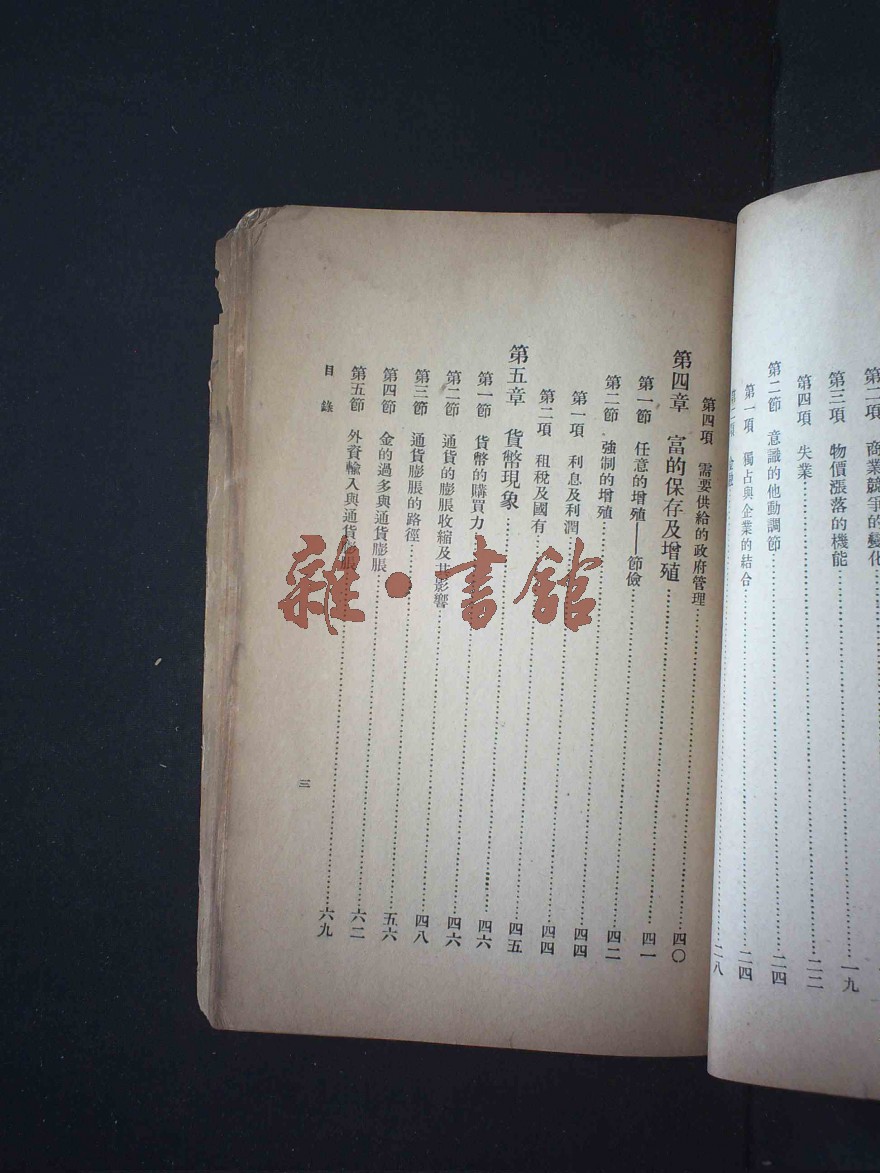 第二項 商業競爭的變化
第三項 物價漲落的機能……一九
第四項 失業……二二
第二節 意識的他動調節……二四
第一項 獨占與企業的結合……二四
第二項 金融……二八
第四項 需要供給的政府管理……四〇
第四章 富的保存及增殖……四一
第一節 任意的增殖——節儉……四二
第二節 強制的增殖……四四
第一項 利息及利潤……四四
第二項 租稅及國有……四五
第五章 貨幣現象……四六
第一節 貨幣的購買力……四六
第二節 通貨的膨脹收縮及其影響……四八
第三節 通貨膨脹的路徑……五六
第四節 金的過多與通貨膨脹……六二
第五節 外資輸入與通貨膨脹……六九
目錄 三
雜·書館